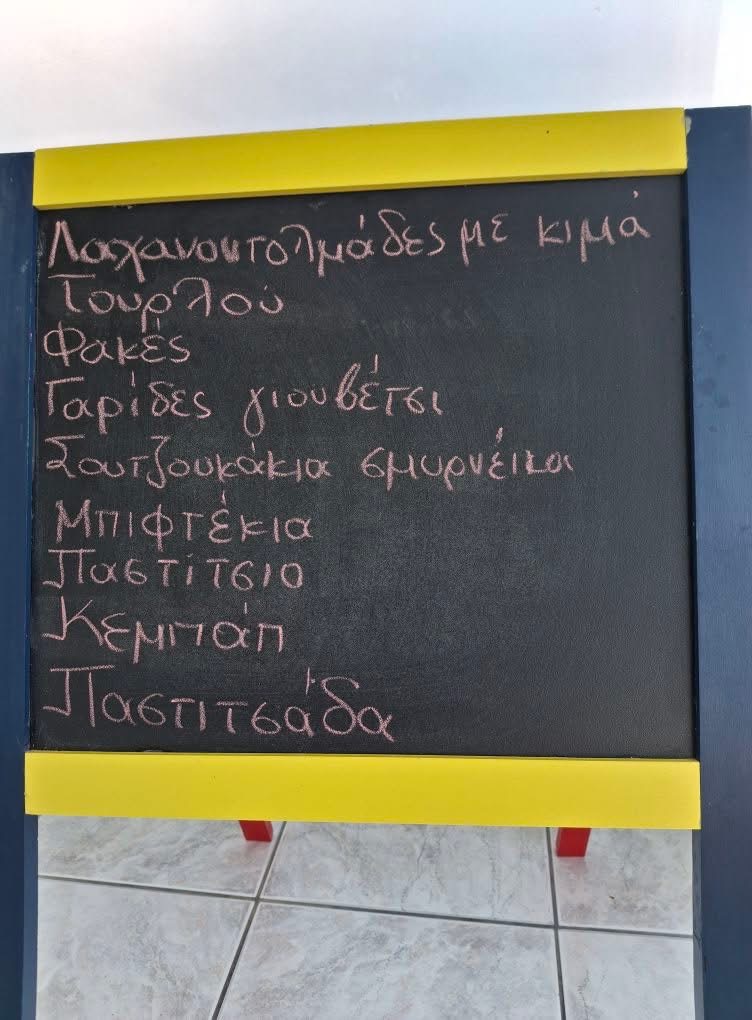 Λαχανοντολμάδες με κιμά
Τουρλού
Φακές
Γαρίδες γιουβέτσι
Σουτζουκάκια σμυρνέικα
Μπιφτέκια
Παστίτσιο
Κεμπάπ
Παστιτσάδα